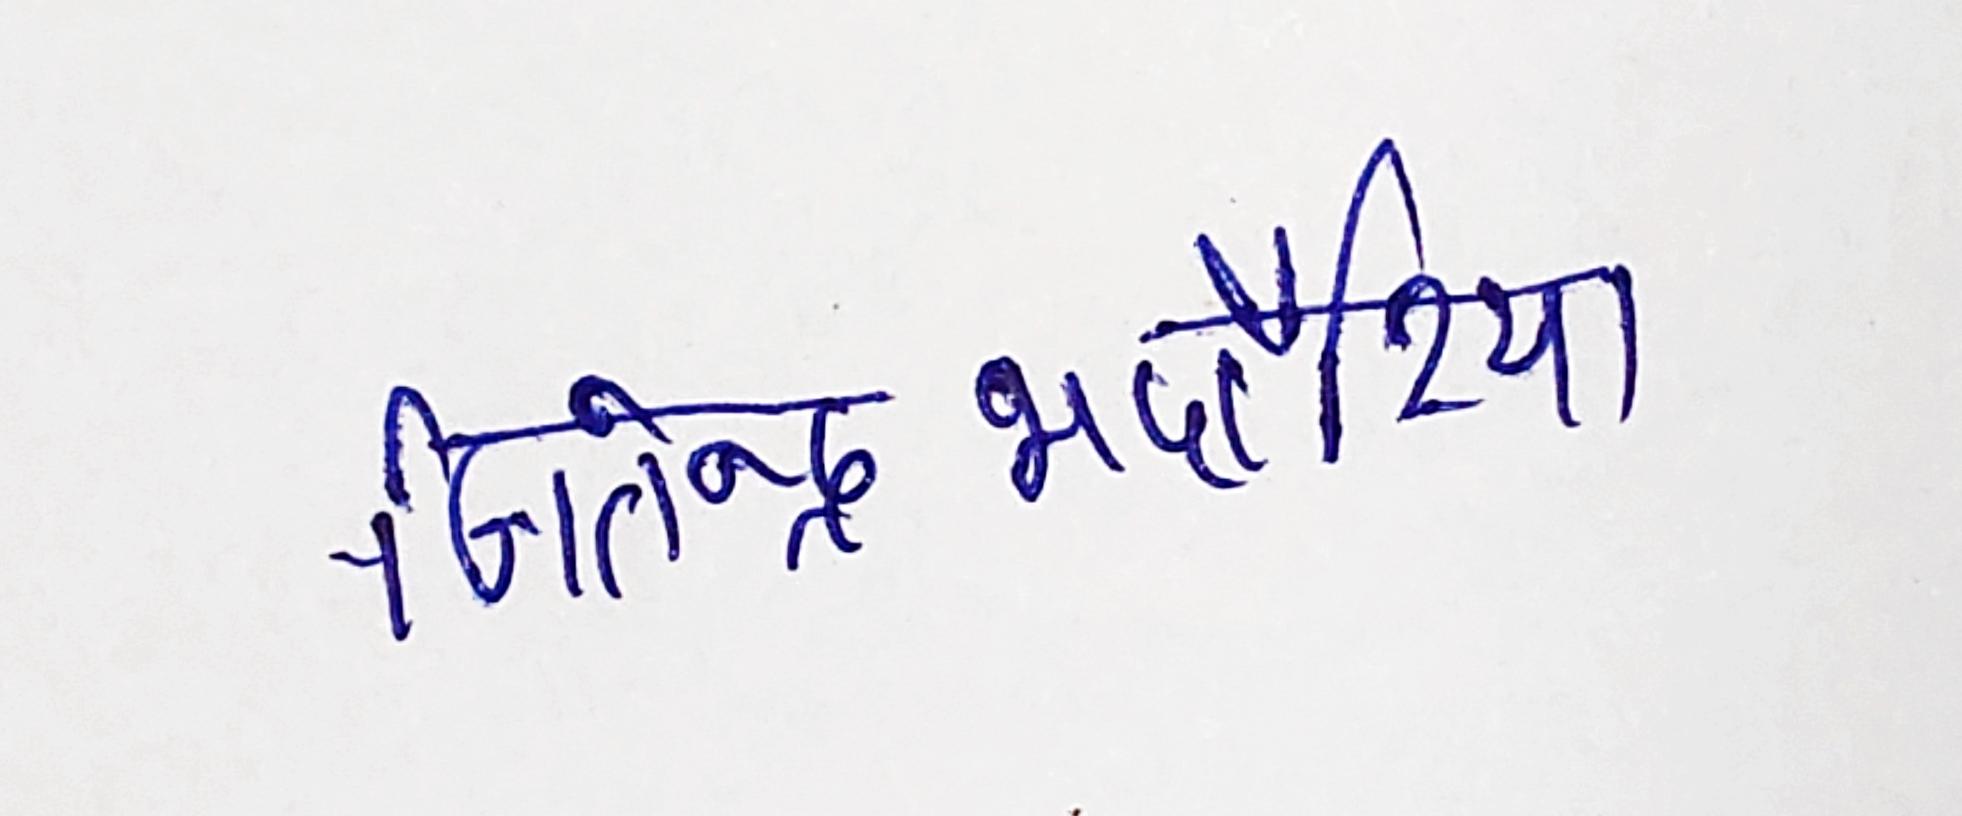 जितेन्द्र भदौरिया